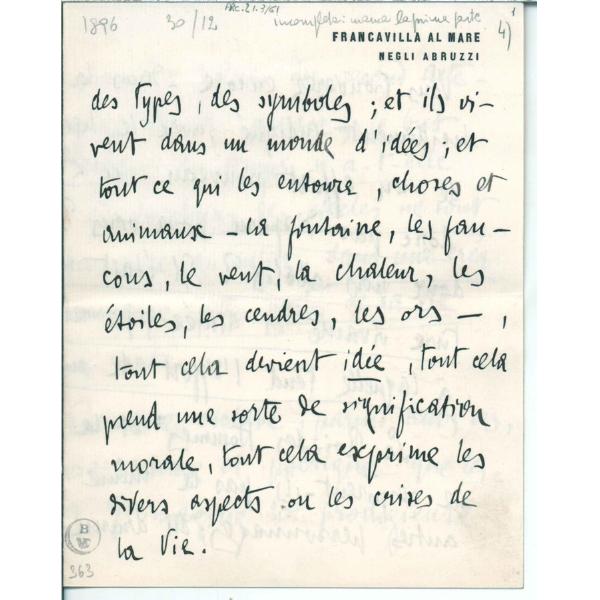 ARC.21.3/61
1896 30/12 incompleta: manca la prima parte 4)
FRANCAVILLA AL MARE
NEGLI ABRUZZI
des types, des symboles ; et ils vi-
vent dans un monde d'idées ; et
tout ce qui les entoure, choses et
animaux – la fontaine, les fau-
cons, le vent, la chaleur, les
étoiles, les cendres, les ors – ,
tout cela devient idée, tout cela
prend une sorte de signification
morale, tout cela exprime les
divers aspects ou les crises de
la Vie.
363